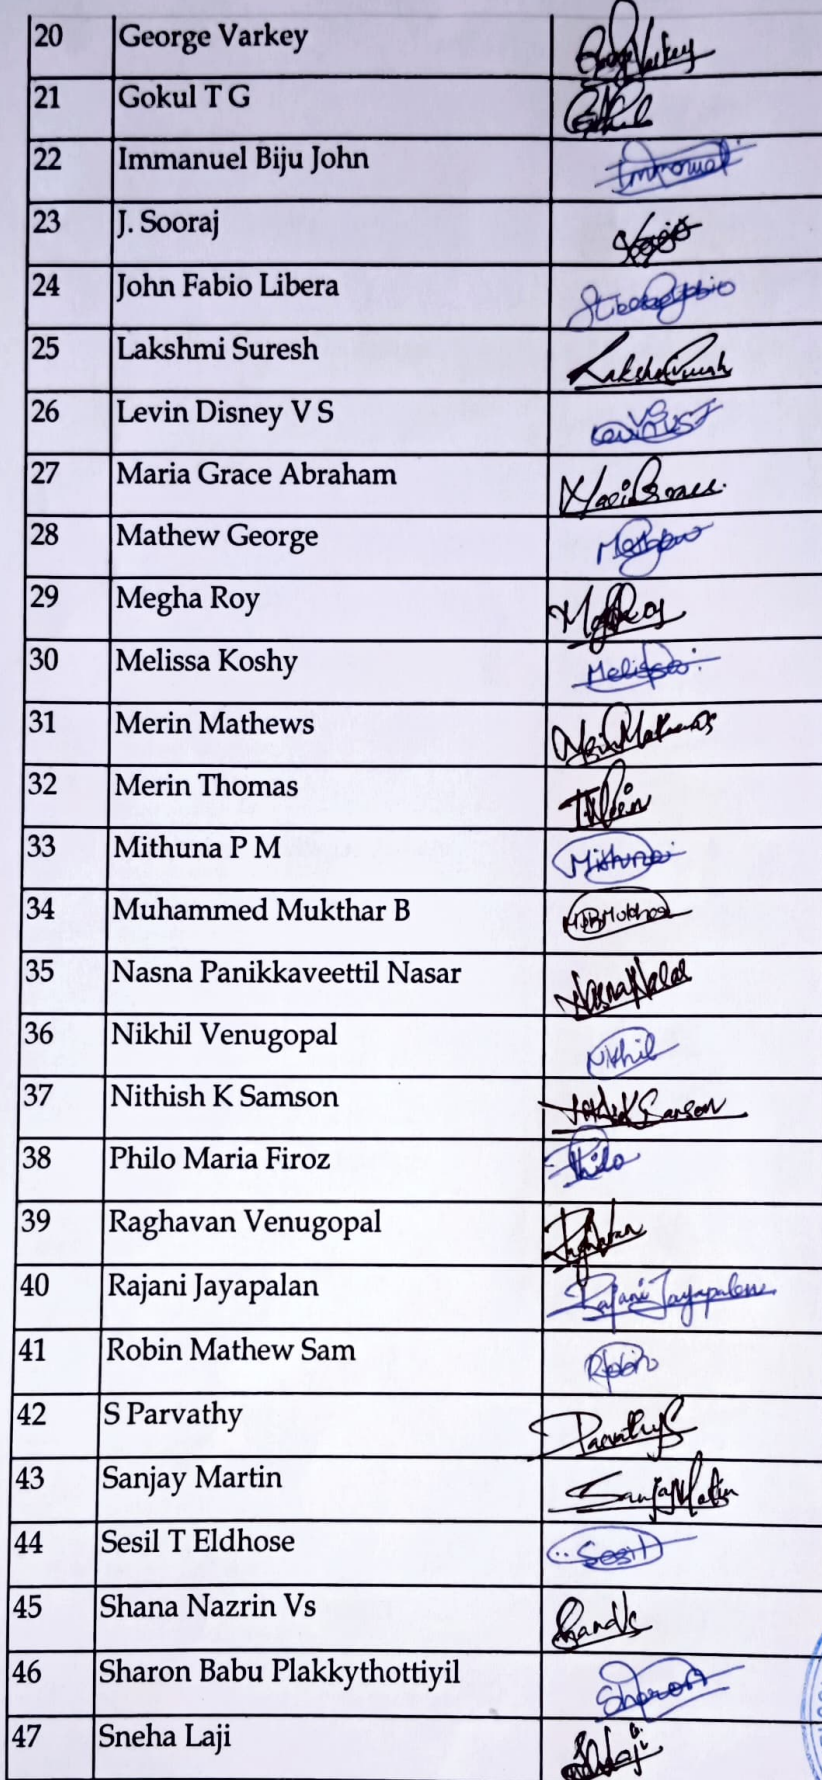 20 George Varkey George Varkey
21 Gokul T G Gokul
22 Immanuel Biju John Immanuel
23 J. Sooraj
24 John Fabio Libera
25 Lakshmi Suresh
26 Levin Disney V S
27 Maria Grace Abraham Maria Grace
28 Mathew George Mathew
29 Megha Roy
30 Melissa Koshy Melissa
31 Merin Mathews Merin Mathews
32 Merin Thomas
33 Mithuna P M Mithuna
34 Muhammed Mukthar B
35 Nasna Panikkaveettil Nasar
36 Nikhil Venugopal Nikhil
37 Nithish K Samson
38 Philo Maria Firoz Philo
39 Raghavan Venugopal
40 Rajani Jayapalan Rajani Jayapalan
41 Robin Mathew Sam Robin
42 S Parvathy Parvathy S
43 Sanjay Martin Sanjay Martin
44 Sesil T Eldhose Sesil
45 Shana Nazrin Vs
46 Sharon Babu Plakkythottiyil Sharon
47 Sneha Laji